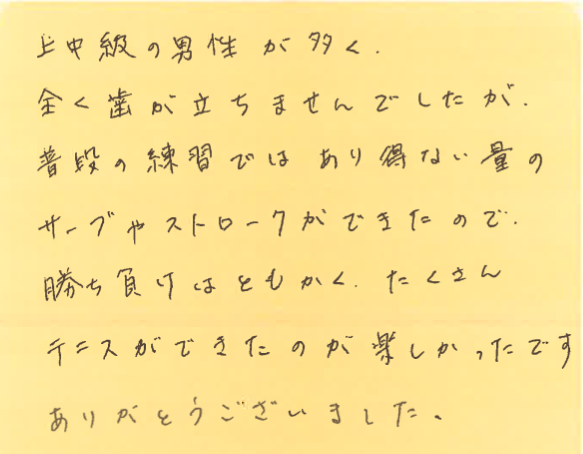 上中級の男性が多く、
全く歯が立ちませんでしたが、
普段の練習ではあり得ない量の
サーブやストロークができたので、
勝ち負けはともかく、たくさん
テニスができたのが楽しかったです
ありがとうございました。